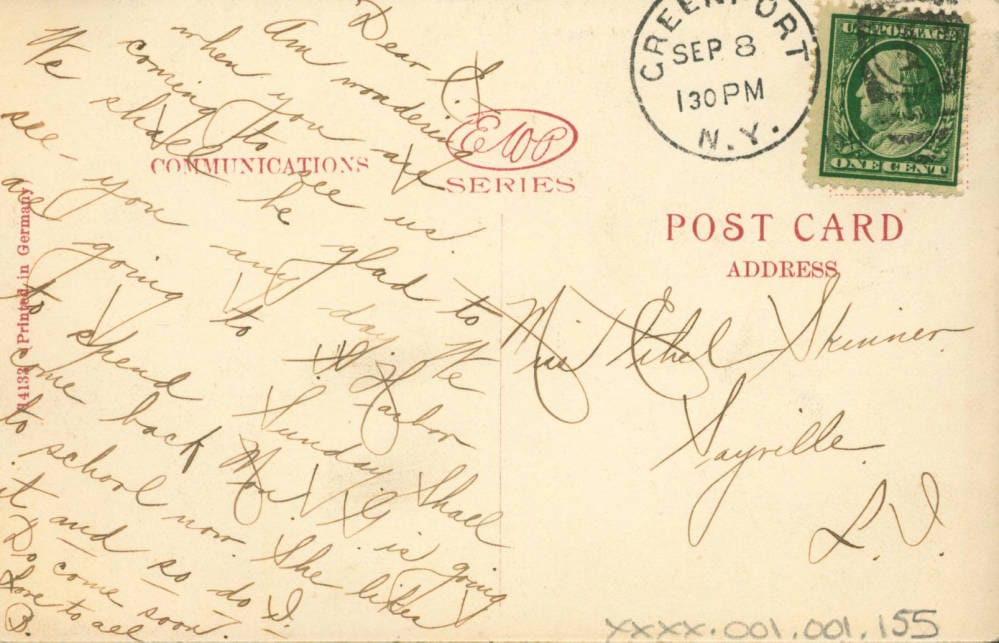 Dear E.
Am wondering
when you are
coming to see us.
We shall be glad to
see you any day. We
are going to S. Harbor
to spend Sunday. Shall
come back Mon. G is going
to school now. She likes
it and so do I.
Do come soon.
Love to all
B.
COMMUNICATIONS
EWP
SERIES
14132 Printed in Germany
GREENPORT
SEP 8
130 PM
N.Y.
U.S. POSTAGE
ONE CENT
POST CARD
ADDRESS
Miss Ethel Skinner
Sayville
L.I.
XXXX.001.001.155